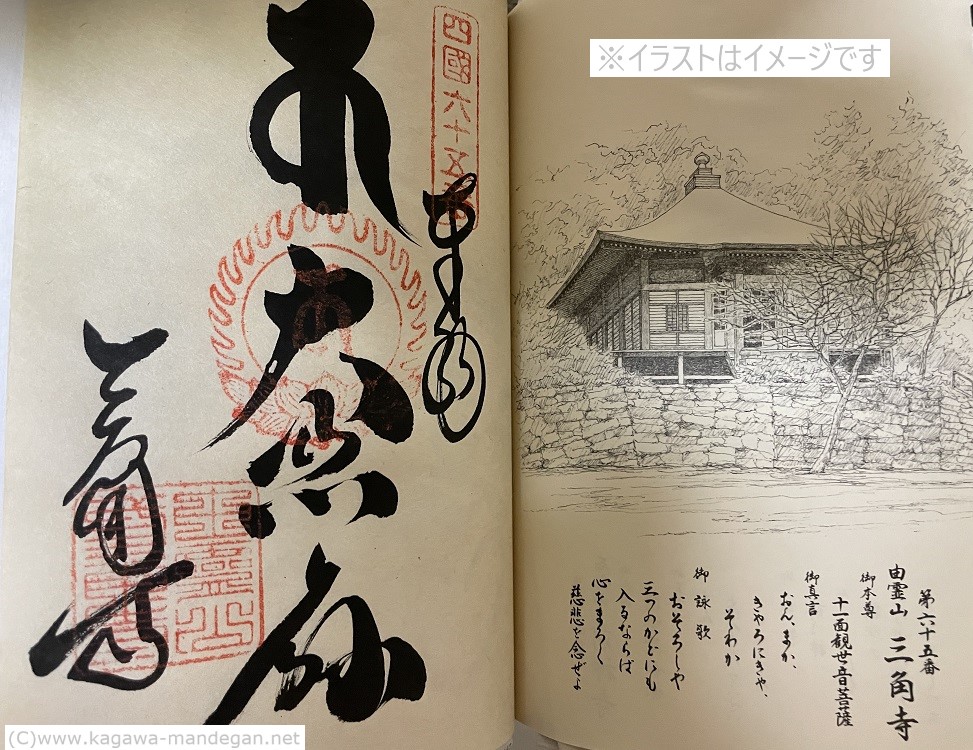 ※イラストはイメージです
第六十五番
由霊山 三角寺
御本尊
十一面観世音菩薩
御真言
おん、まか、
きやろにきや、
そわか
御詠歌
おそろしや
三つのかどにも
入るならば
心をまろく
慈悲を念ぜよ
四國六十五番
奉納
大悲殿
三角寺
(C)www.kagawa-mandegan.net